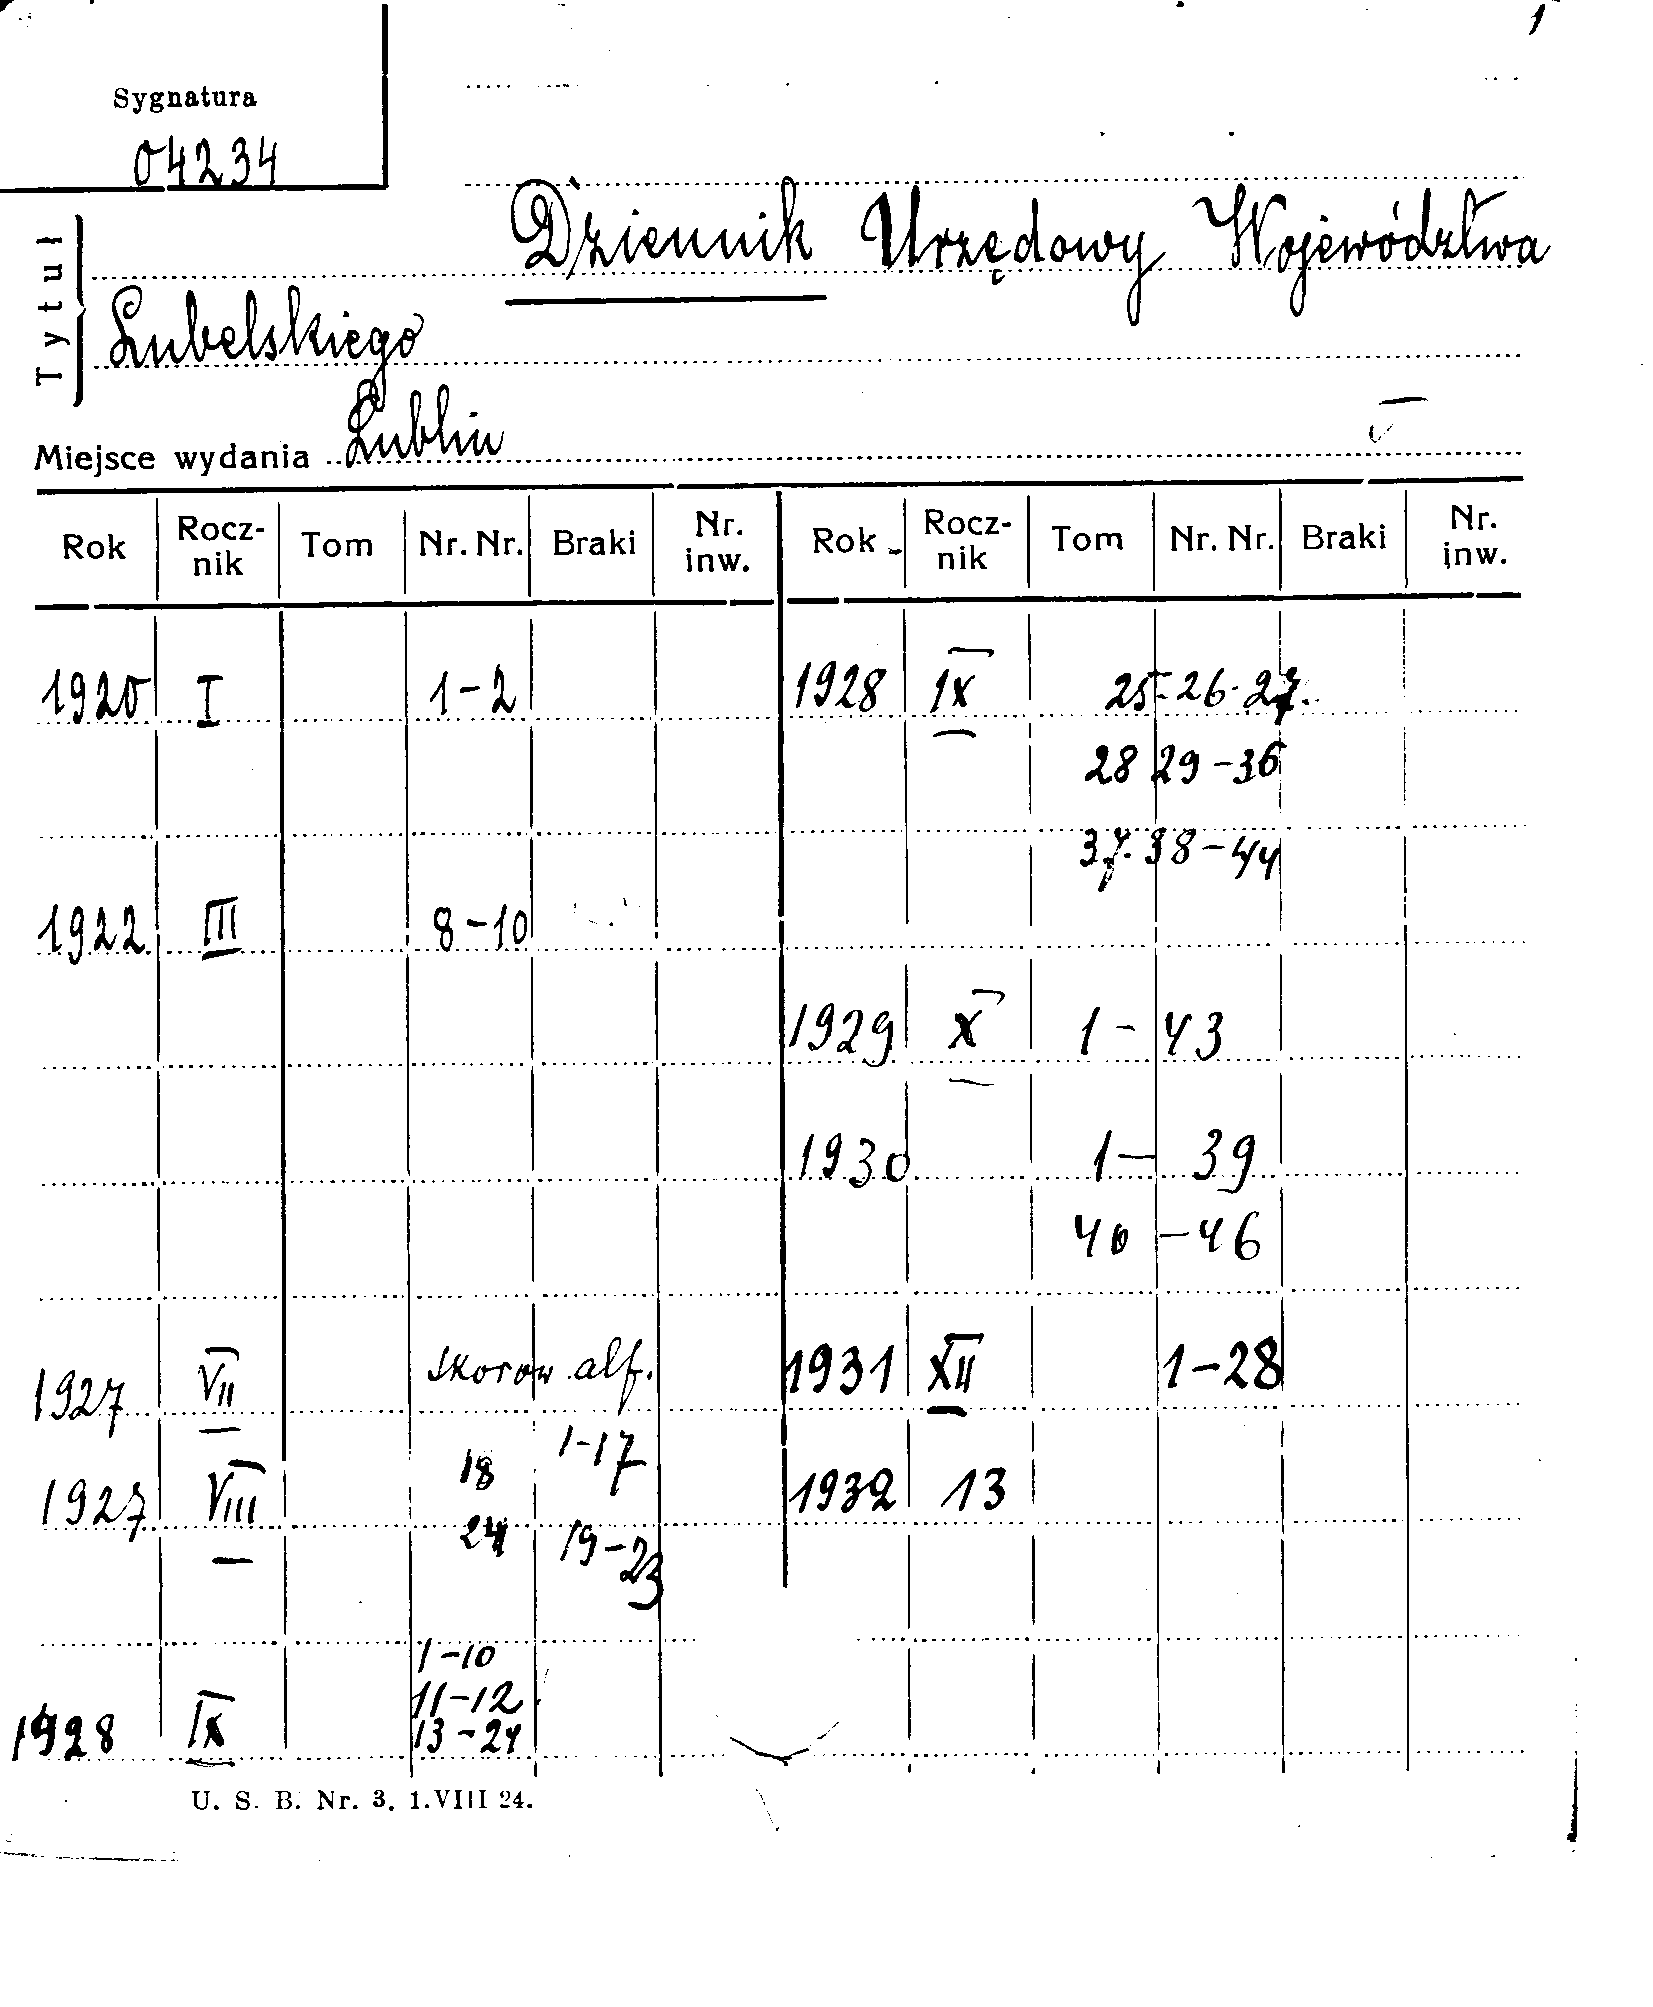 1
Sygnatura
04234
Tytuł
Dziennik Urzędowy Województwa
Lubelskiego
Miejsce wydania Lublin
Rok Rocz-nik Tom Nr. Nr. Braki Nr. inw. Rok Rocz-nik Tom Nr. Nr. Braki Nr. inw.
1920 I 1-2
1922 III 8-10
1927 VII skorow. alf.
1927 VIII 18 1-17
24 19-23
1-10
11-12
1928 IX 13-24
1928 IX 25-26-27.
28 29-36
37.38-44
1929 X 1-43
1930 1-39
40-46
1931 XII 1-28
1932 13
U. S. B. Nr. 3. 1.VIII 24.